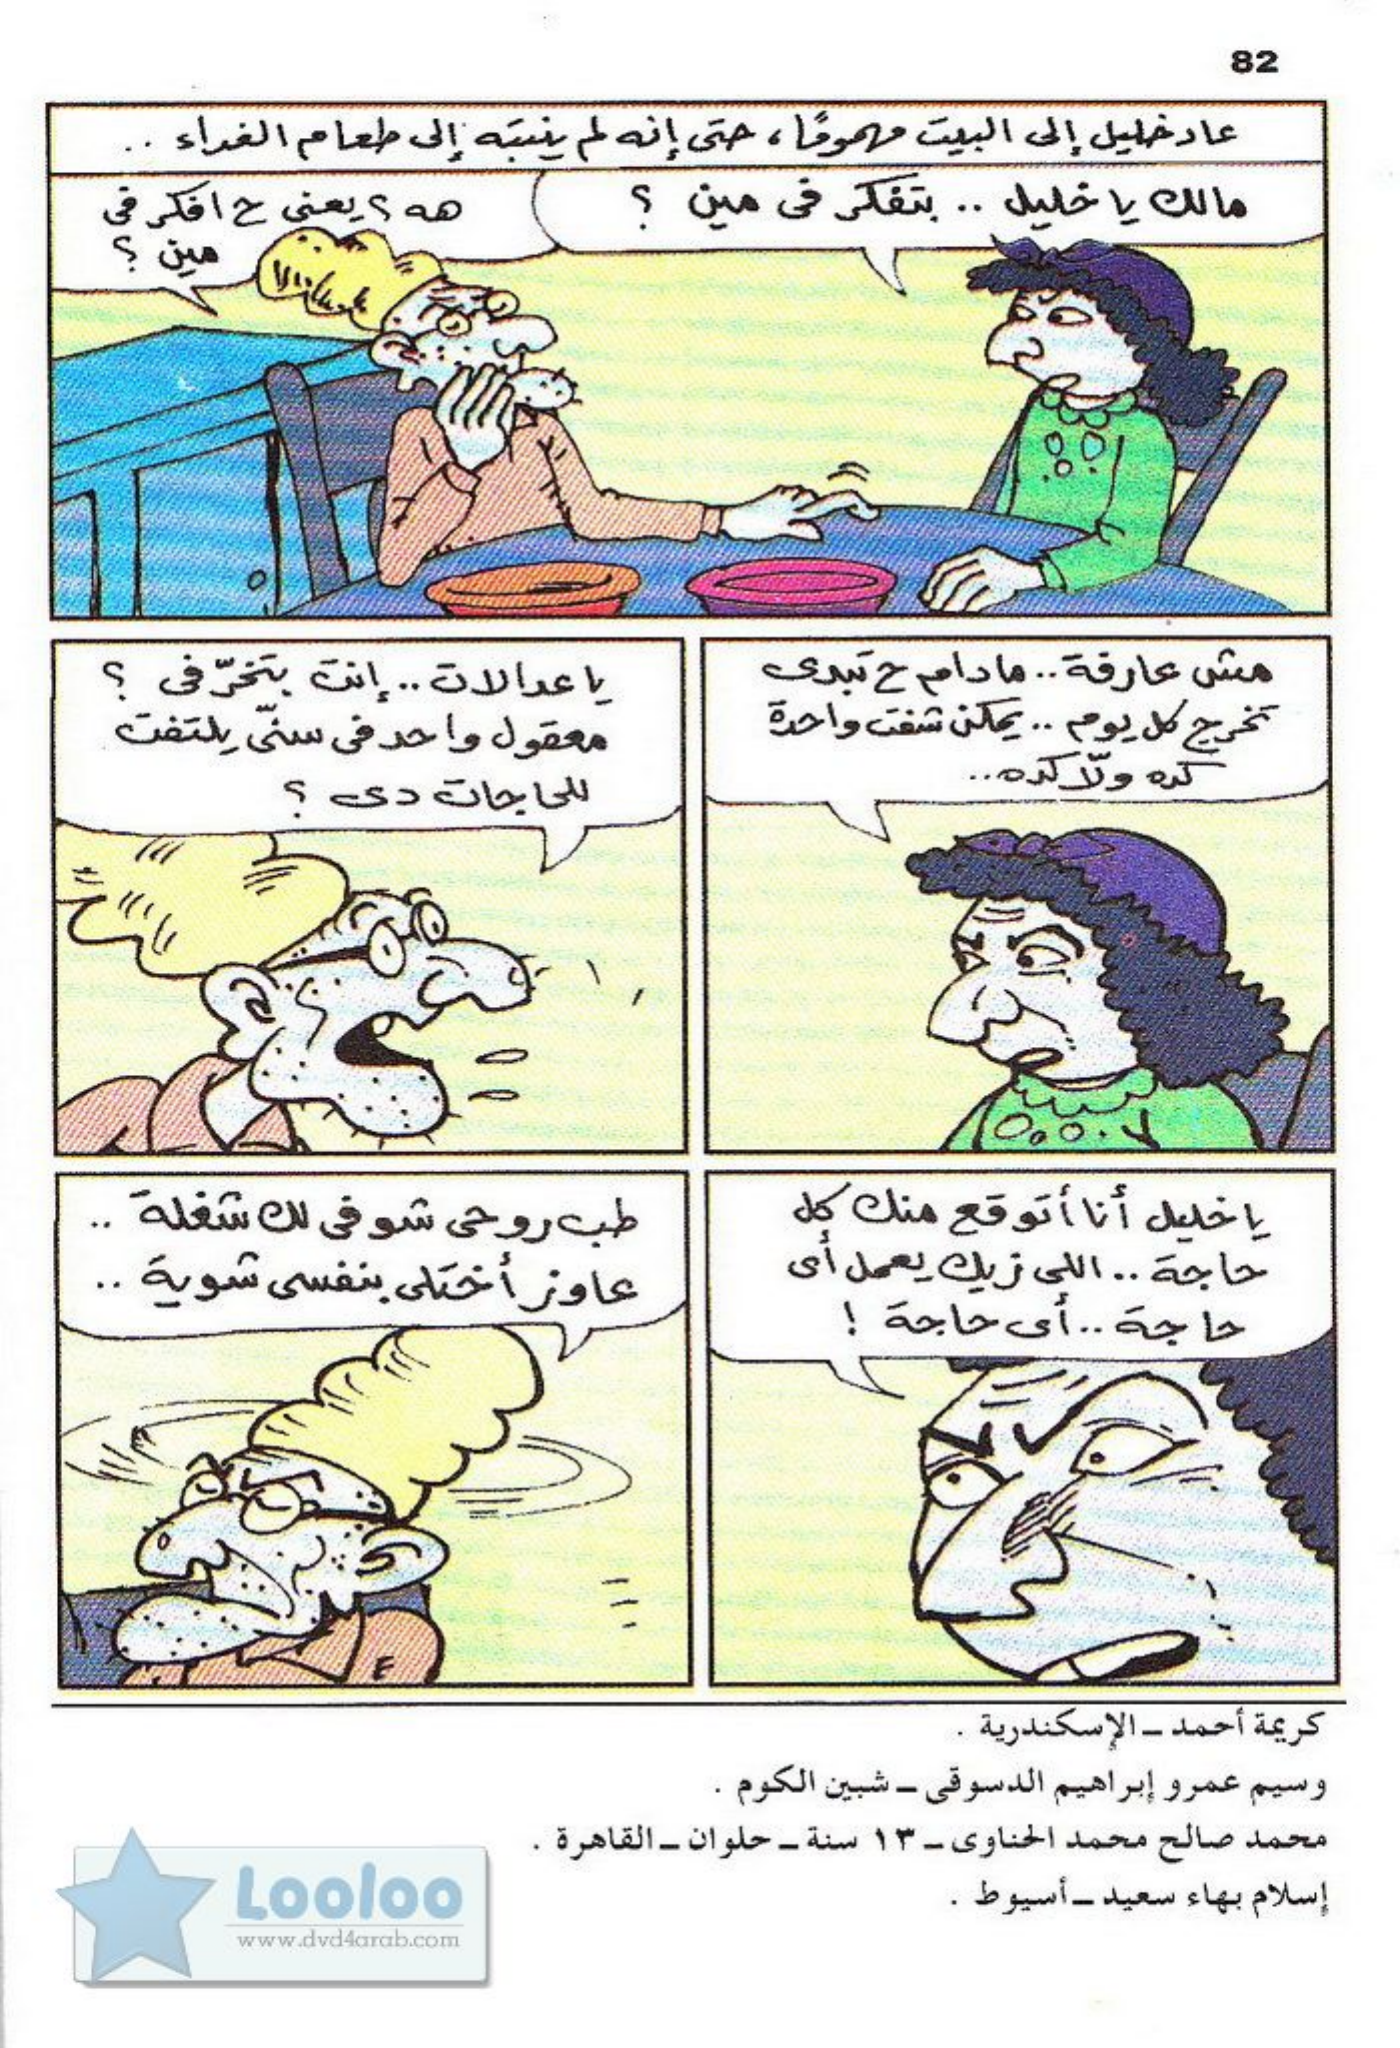 82
عاد خليل إلى البيت مهمومًا، حتى إنه لم ينتبه إلى طعام الغداء ..
مالك يا خليل .. بتفكر فى مين ؟
هه ؟ يعنى ح افكر فى
مين ؟
مش عارفة .. مادام ح تبدى
تخرج كل يوم .. يمكن شفت واحدة
كده ولّا كده...
يا عدالات .. إنتِ بتخرّفى ؟
معقول واحد فى سنّى يلتفت
للحاجات دى ؟
يا خليل أنا أتوقع منك كل
حاجة .. اللى زيك يعمل أى
حاجة .. أى حاجة !
طب روحى شوفى لك شغلة ..
عاوز أختلى بنفسى شوية ..
كريمة أحمد ــ الإسكندرية .
وسيم عمرو إبراهيم الدسوقى ــ شبين الكوم .
محمد صالح محمد الحناوى ــ ١٣ سنة ــ حلوان ــ القاهرة .
إسلام بهاء سعيد ــ أسيوط .
Looloo
www.dvd4arab.com